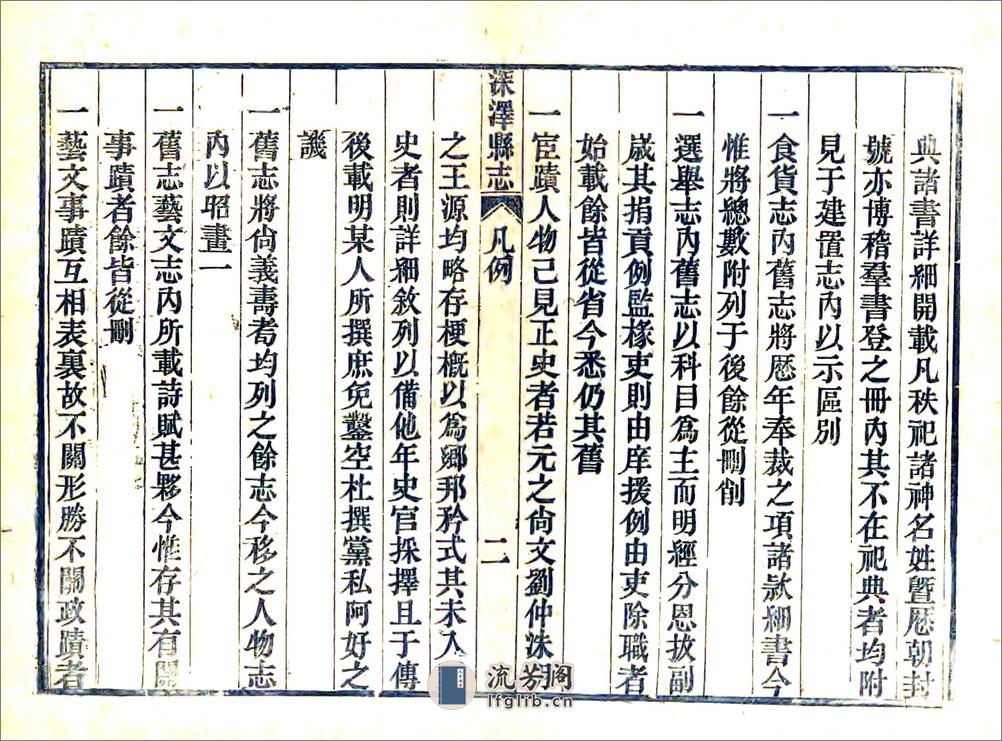 典諸書詳細開載凡秩祀諸神名姓暨歷朝封
號亦博稽羣書登之冊內其不在祀典者均附
見于建置志內以示區別
一食貨志內舊志將歷年奉裁之項諸款細書今
惟將總數附列于後餘從刪削
一選舉志內舊志以科目為主而明經分恩拔副
歲其捐貢例監掾吏則由庠援例由吏除職者
始載餘皆從省今悉仍其舊
深澤縣志
凡例
二
一宦蹟人物已見正史者若元之尙文劉仲洙
之王源均略存梗概以爲鄉邦矜式其未入
史者則詳細敘列以備他年史官採擇且于傳
後載明某人所撰庶免鑿空杜撰黨私阿好之
譏
一舊志將尙義壽耇均列之餘志今移之人物志
內以昭畫一
一舊志藝文志內所載詩賦甚夥今惟存其有關
事蹟者餘皆從刪
一藝文事蹟互相表裏故不關形勝不關政蹟者
流芳阁
lfglib.cn